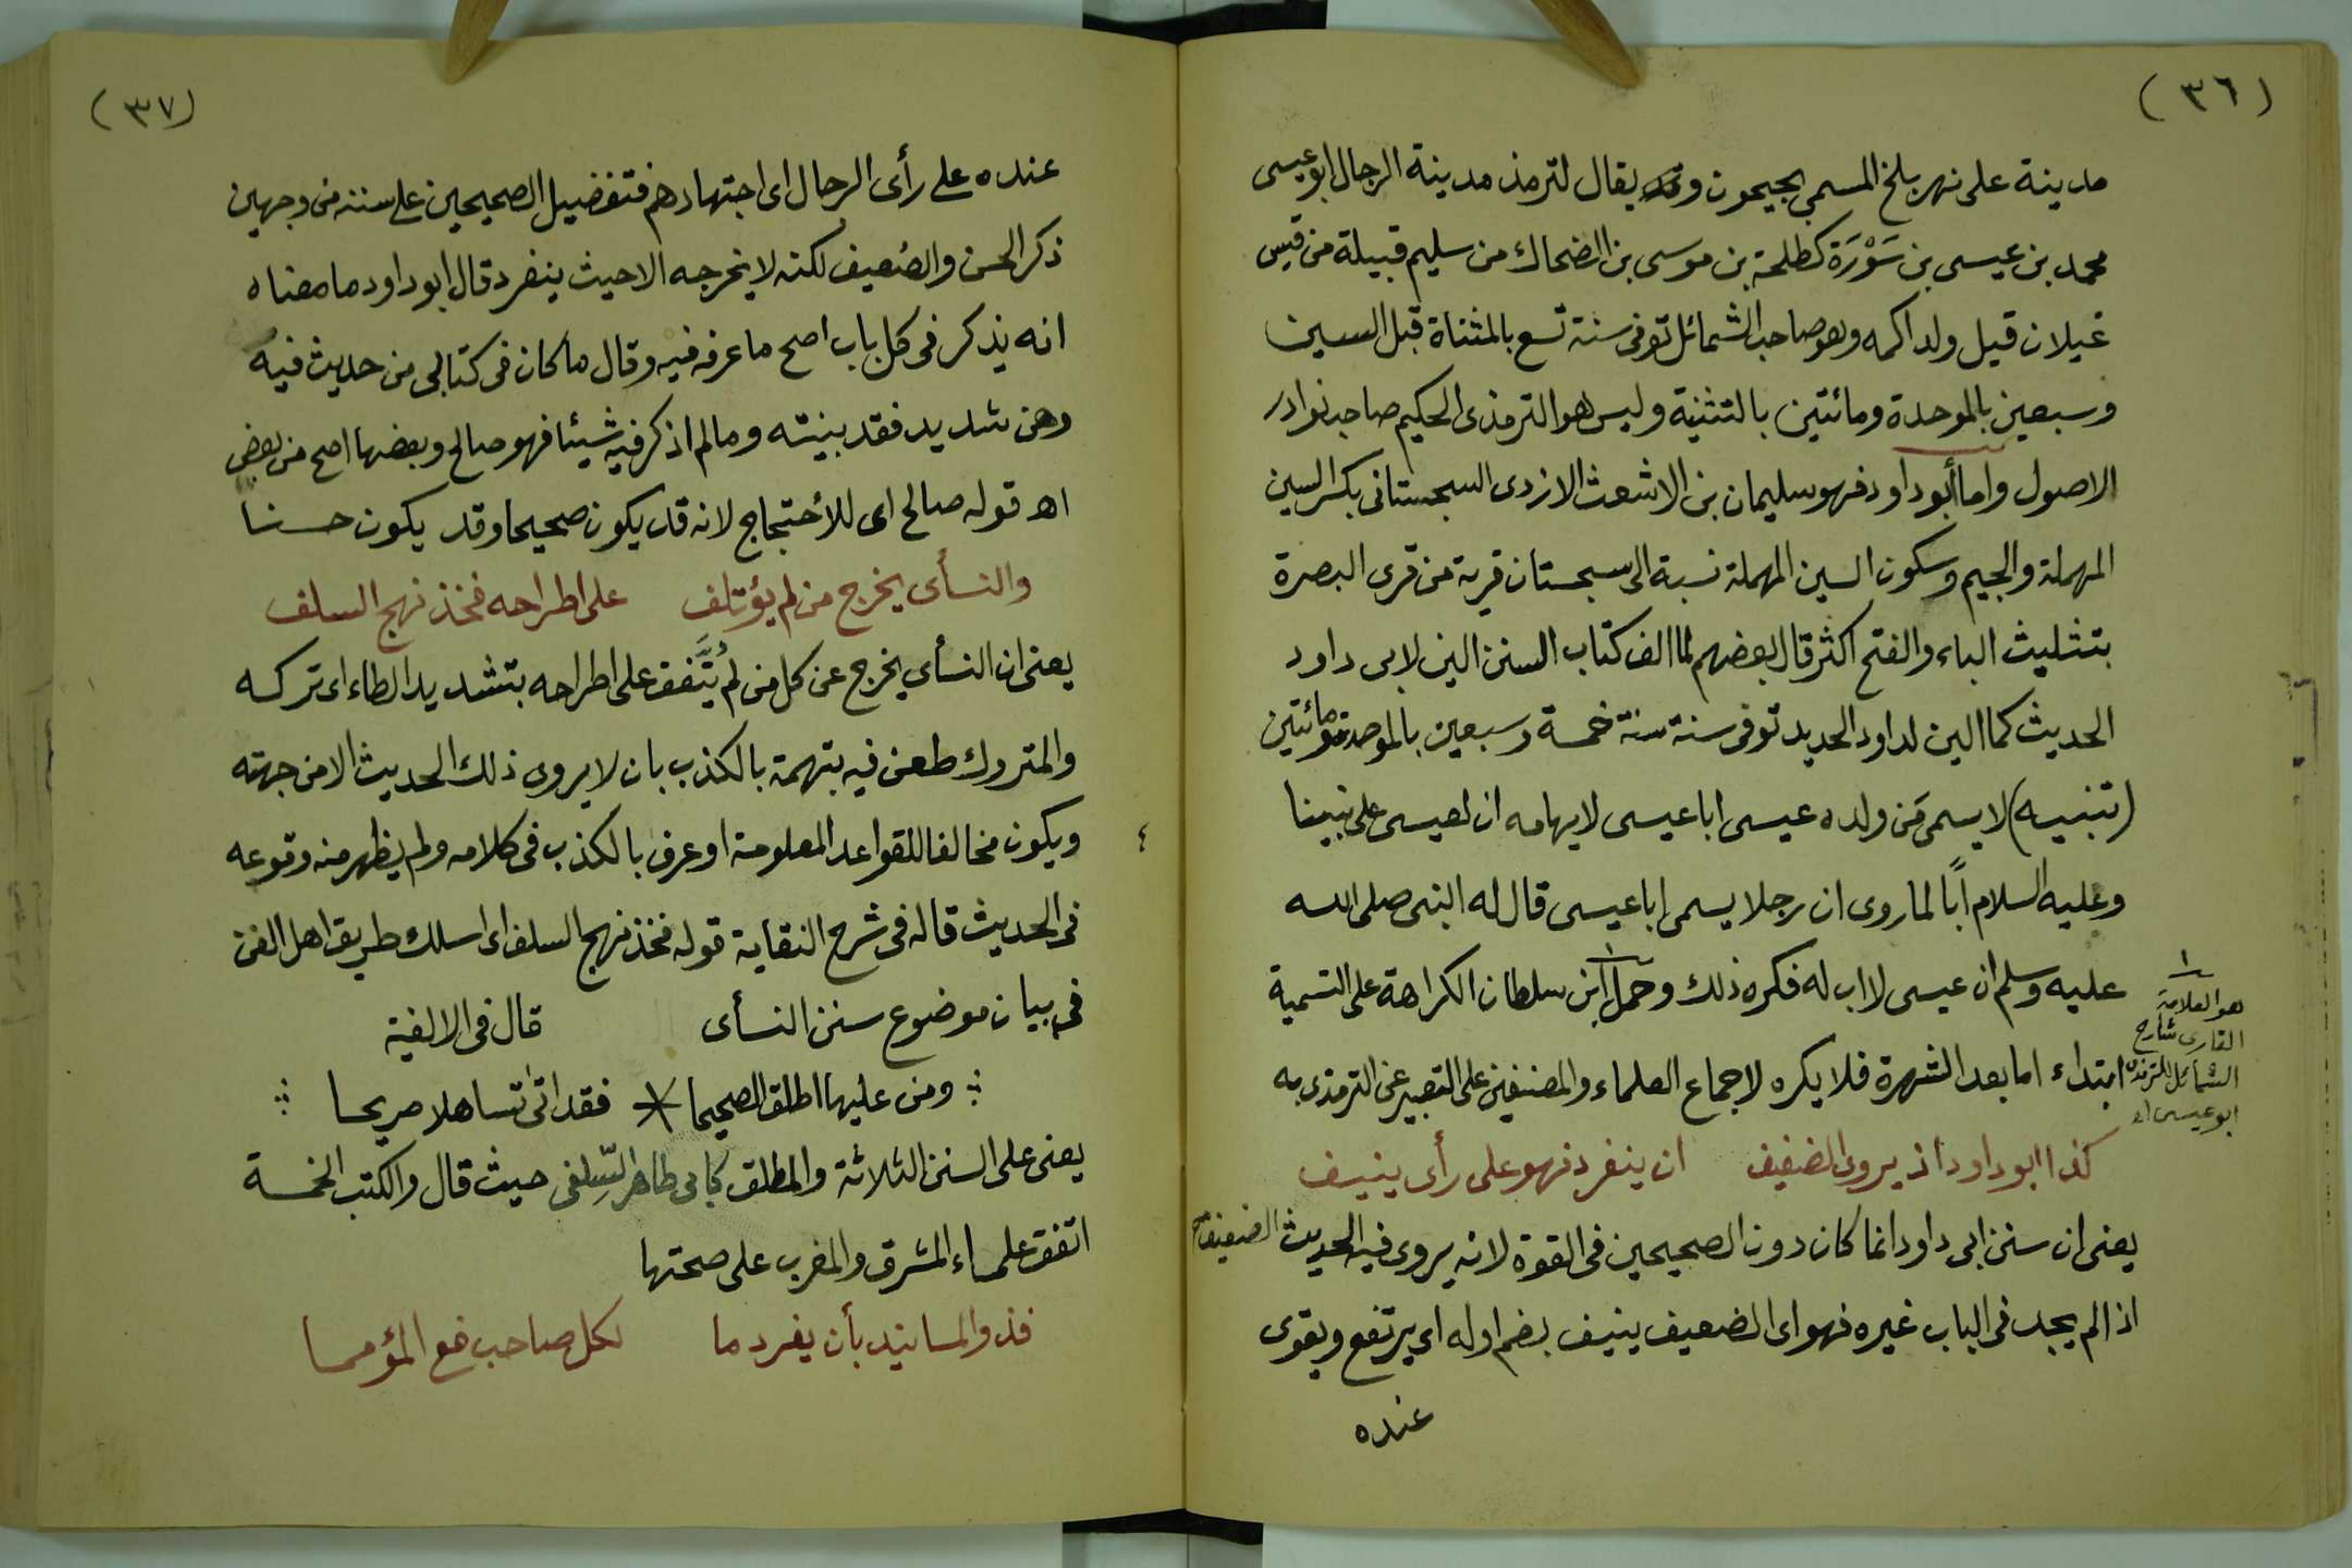 (٣٦)
مدينة على نهر بلخ المسمى بجيحون و يقال لترمذ مدينة الرجال ابو عيسى
محمد بن عيسى بن سَوْرَة كطلحة بن موسى بن الضحاك من سليم قبيلة من قيس
غيلان قيل ولد اكمه وهو صاحب الشمائل توفى سنة تسع بالمثناة قبل السين
وسبعين بالموحدة ومائتين بالتثنية وليس هو الترمذى الحكيم صاحب نوادر
الاصول واما أبو داود فهو سليمان بن الاشعث الازدى السجستانى بكسر السين
المهملة والجيم وسكون السين المهملة نسبة الى سجستان قرية من قرى البصرة
بتثليث الباء والفتح اكثر قال بعضهم لما الف كتاب السنن الين لابى داود
الحديث كما الين لداود الحديد توفى سنة سنة خمسة وسبعين بالموحدة ومائتين
(تنبيه) لا يسمى مَن ولده عيسى ابا عيسى لايهامه ان لعيسى على نبينا
وعليه السلام اباً لما روى ان رجلا يسمى ابا عيسى قال له النبى صلى الله
عليه وسلم ان عيسى لا اب له فكره ذلك وحمل ابن سلطان الكراهة على التسمية
ابتداء اما بعد الشهرة فلا يكره لاجماع العلماء والمصنفين على التعبير عن الترمذى به
١
هو العلامة
القارى شارح
الشمائل للترمذى
ابو عيسى اه
كذا ابو داود اذ يروى الضعيف ان ينفرد فهو على رأى ينيف
يعنى ان سنن ابى داود انما كان دون الصحيحين فى القوة لانه يروى فيه الحديث الضعيف
اذا لم يجد فى الباب غيره فهو اى الضعيف ينيف بضم اوله اى يرتفع ويقوى
عنده
(٣٧)
عنده على رأى الرجال اى اجتهادهم فتفضيل الصحيحين على سننه من وجهين
ذكر الحسن والضعيف لكنه لا يخرجه الا حيث ينفرد قال ابو داود ما معناه
انه يذكر فى كل باب اصح ما عرفه فيه وقال ما كان فى كتابى من حديث فيه
وهن شديد فقد بينته ومالم اذكر فيه شيئا فهو صالح وبعضها اصح من بعض
اه قوله صالح اى للأحتجاج لانه قد يكون صحيحا وقد يكون حسنا
والنسأى يخرج من لم يؤتلف على اطراحه فخذ نهج السلف
يعنى ان النسأى يخرج عن كل من لم يُتَّفق على اطراحه بتشديد الطاء اى تركه
والمتروك طعن فيه بتهمة بالكذب بان لا يروى ذلك الحديث الا من جهته
ويكون مخالفا للقواعد المعلومة او عرف بالكذب فى كلامه ولم يظهر منه وقوعه
٤
فى الحديث قاله فى شرح النقاية قوله فخذ نهج السلف اى اسلك طريق اهل الفن
فى بيان موضوع سنن النسأى قال فى الالفية
ومن عليها اطلق الصحيحا * فقد اتى تساهلا صريحا
يعنى على السنن الثلاثة والمطلق كابى طاهر السِّلفى حيث قال والكتب الخمسة
اتفق علماء المشرق والمغرب على صحتها
فذو المسانيد بأن يفرد ما لكل صاحب فع المؤمما